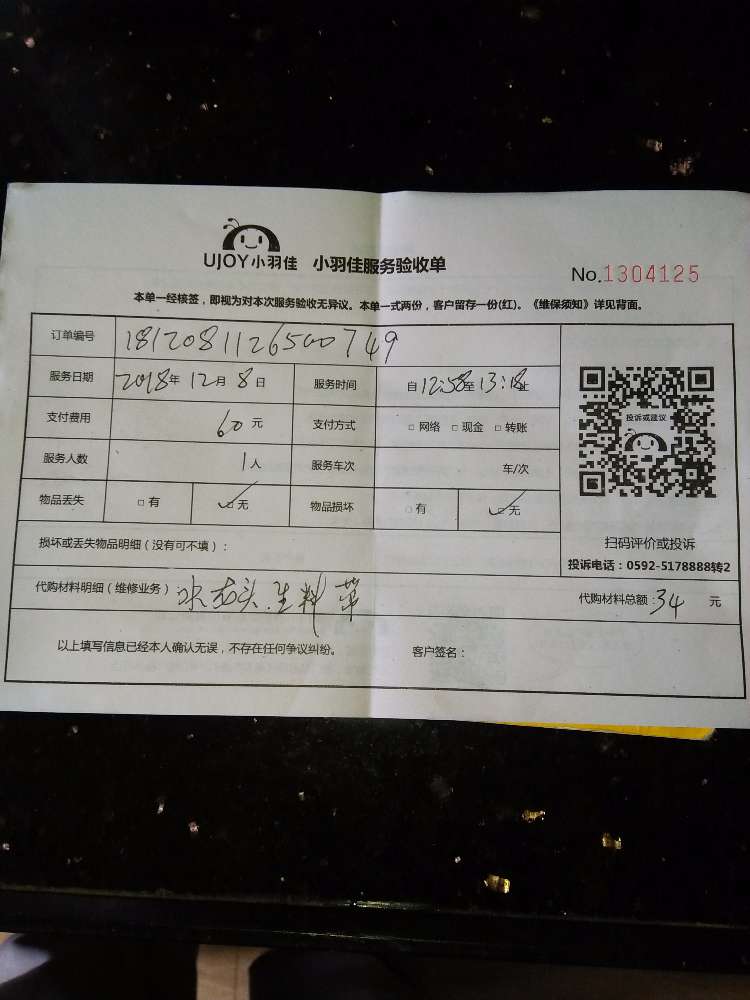 UJOY小羽佳 小羽佳服务验收单
No.1304125
本单一经核签，即视为对本次服务验收无异议。本单一式两份，客户留存一份(红)。《维保须知》详见背面。
订单编号 1812081126500749
服务日期 2018年 12月 8日 服务时间 自12:58至13:18止
支付费用 60元 支付方式 □ 网络 □ 现金 □ 转账
服务人数 1人 服务车次 车/次
物品丢失 □ 有 ☑ 无 物品损坏 □ 有 ☑ 无
投诉或建议
扫码评价或投诉
投诉电话：0592-5178888转2
损坏或丢失物品明细（没有可不填）：
代购材料明细（维修业务） 水龙头.生料 代购材料总额：34 元
以上填写信息已经本人确认无误，不存在任何争议纠纷。 客户签名：